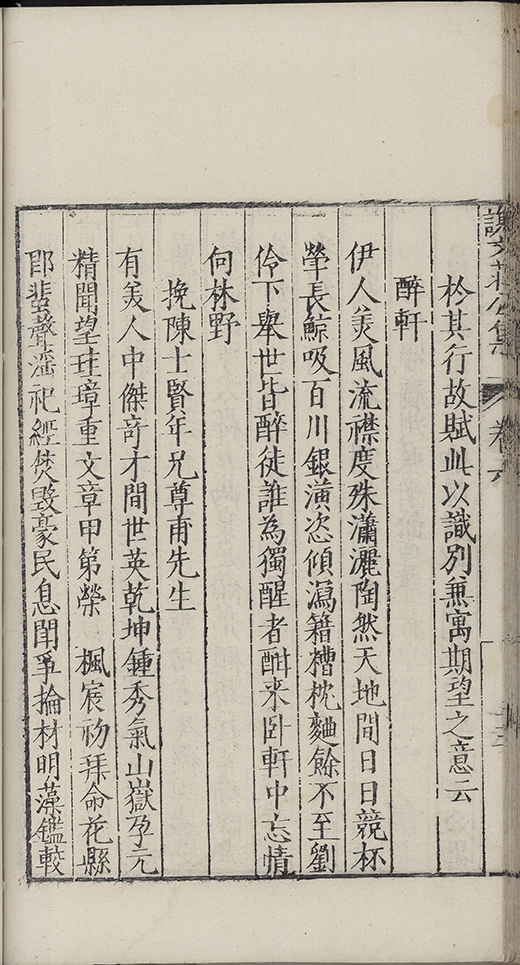 於其行故賦此以識別兼寓期望之意云
醉軒
伊人美風流襟度殊瀟灑陶然天地間日日競杯
斝長鯨吸百川銀潢恣傾瀉籍糟枕麯餘不至劉
伶下舉世皆醉徒誰為獨醒者酣來卧軒中忘情
何林野
挽陳士賢年兄尊甫先生
有美人中傑奇才間世英乾坤鍾秀氣山嶽孕元
精聞望珪璋重文章甲第榮 楓宸初拜命花縣
即蜚聲滛祀經焚毀豪民息閧爭掄材明藻鑑較
文莊公集 卷六